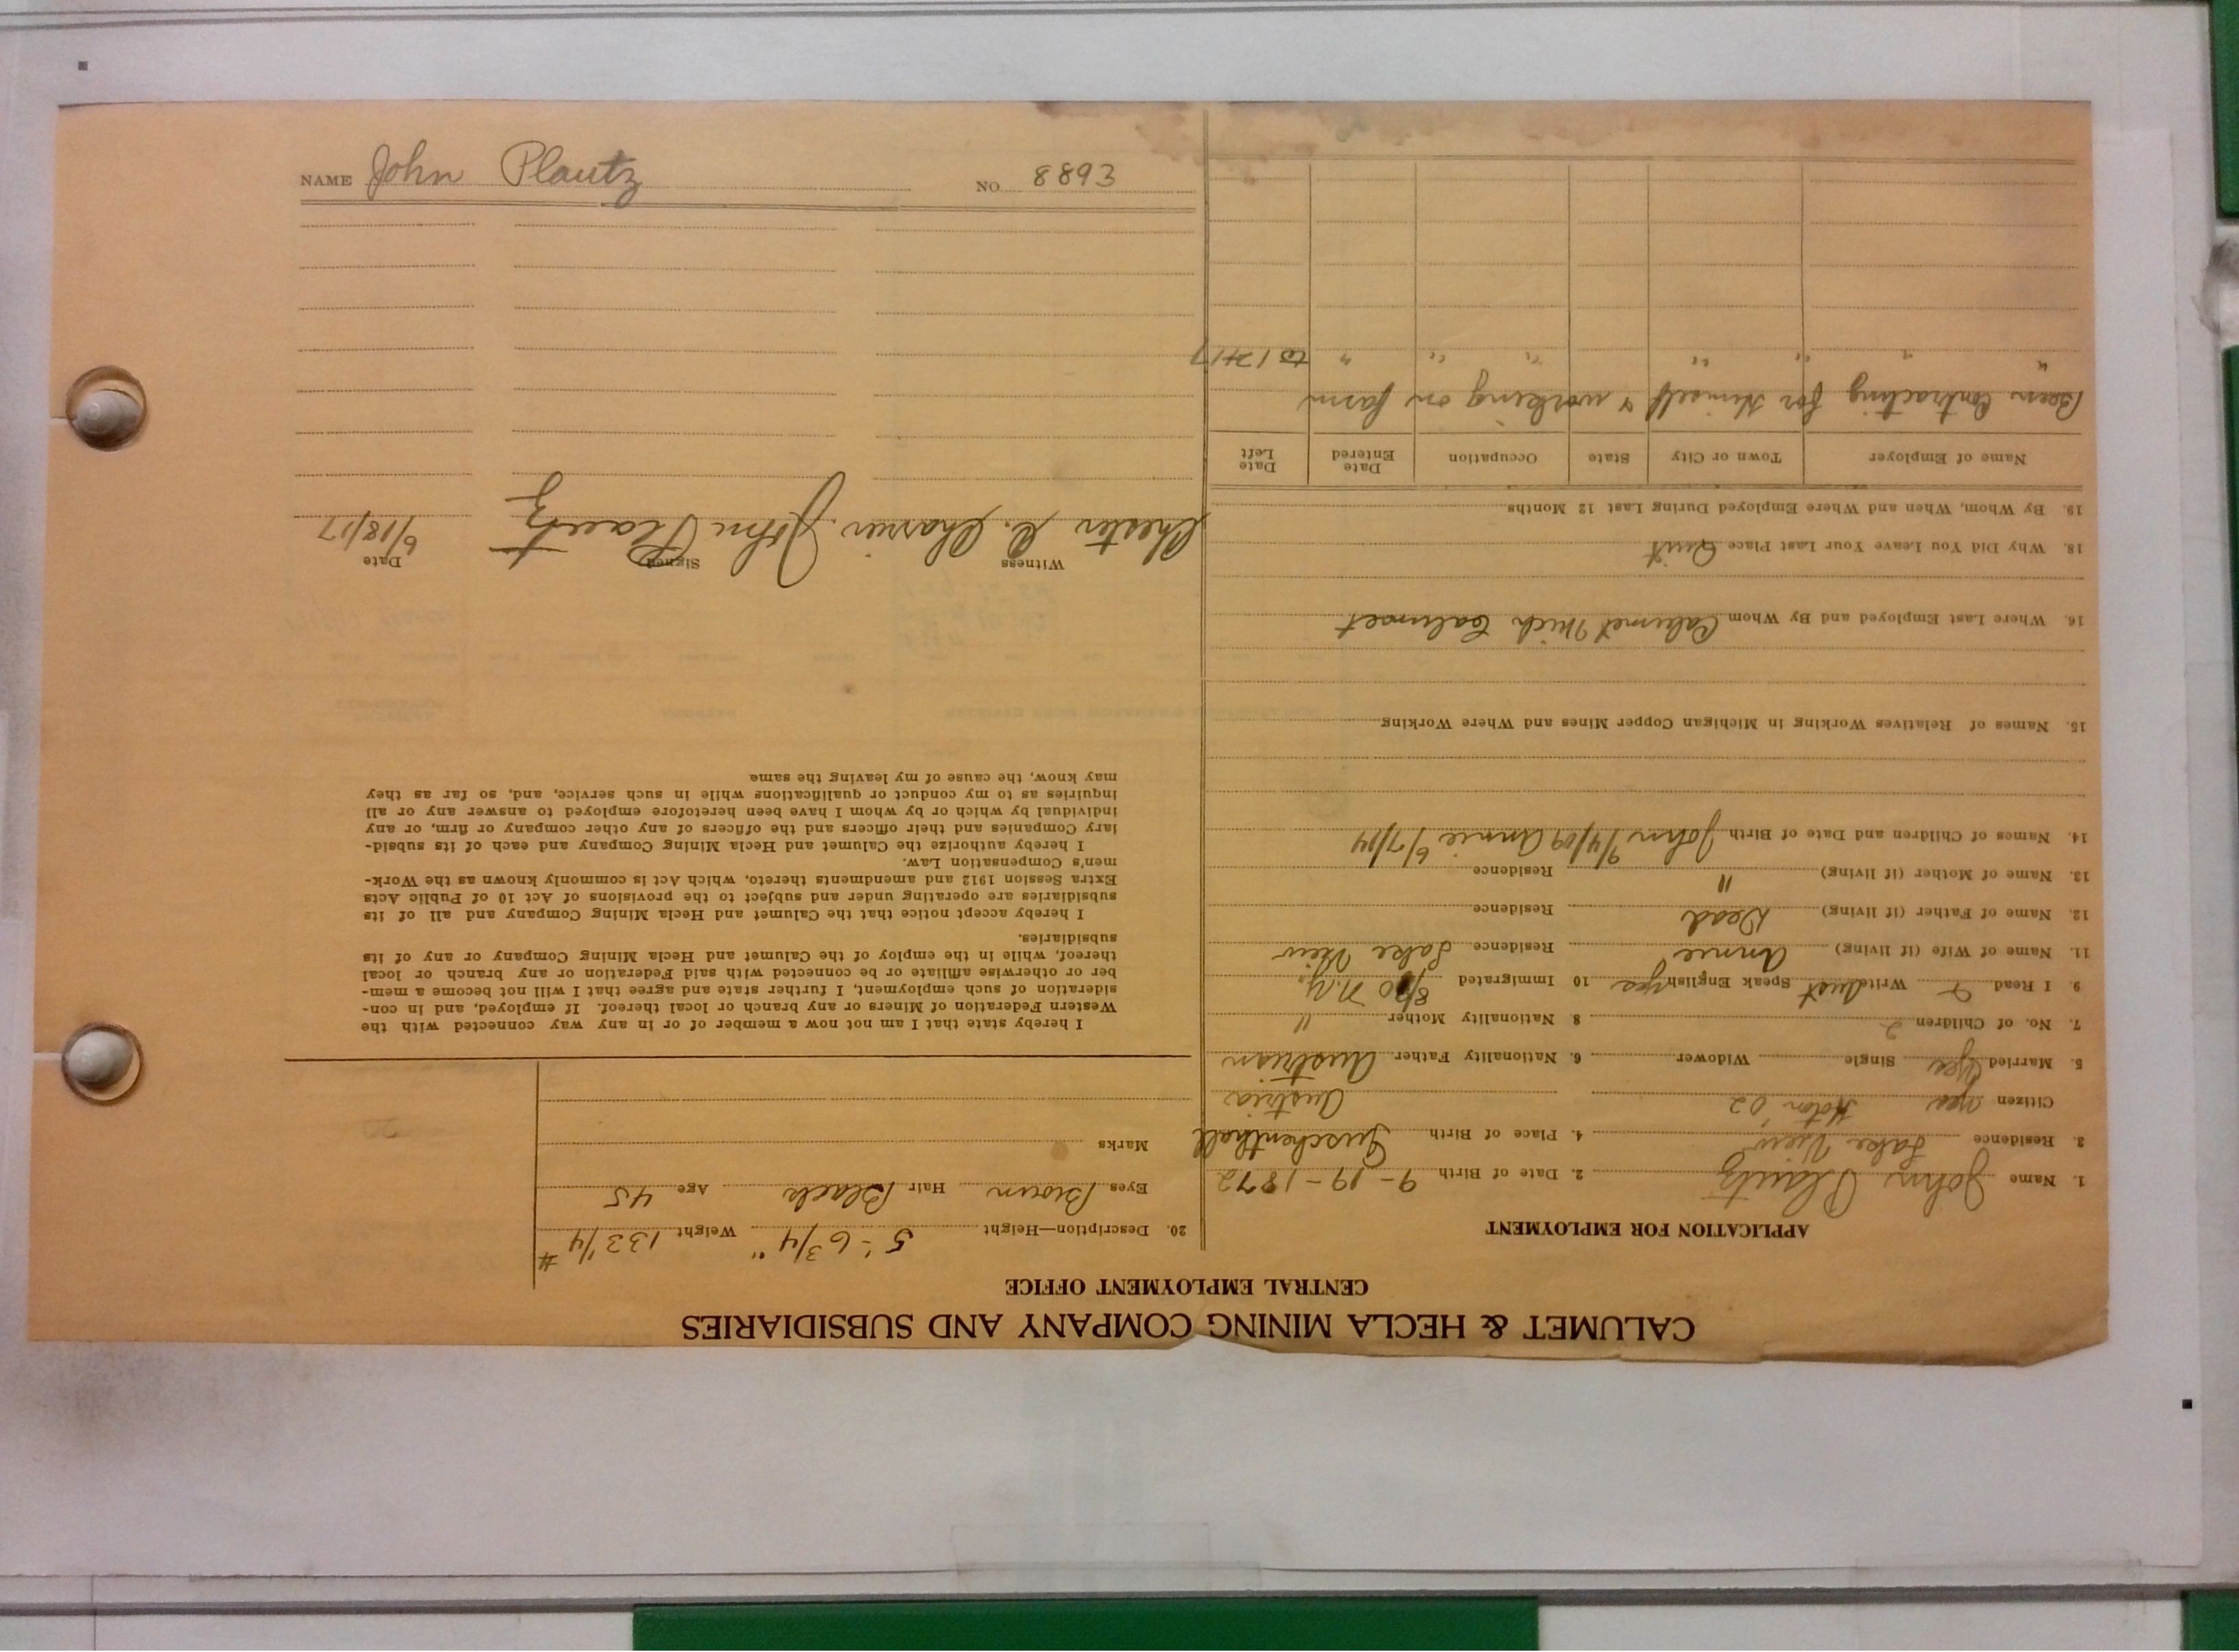 NAME John Plautz NO. 8893
CALUMET & HECLA MINING COMPANY AND SUBSIDIARIES
CENTRAL EMPLOYMENT OFFICE
APPLICATION FOR EMPLOYMENT
1. Name John Plautz 2. Date of Birth 9-19-1872
3. Residence Lake View 4. Place of Birth
Citizen yes '02 Austria
5. Married yes Single Widower 6. Nationality Father Austrian
7. No. of Children 2 8 Nationality Mother "
9. I Read Write Speak English yes 10 Immigrated N.Y.
11. Name of Wife (if living) Annie Residence Lake View
12. Name of Father (if living) Dead Residence
13. Name of Mother (if living) " Residence
14. Names of Children and Date of Birth John 9/4/09 Annie 6/7/14
15. Names of Relatives Working in Michigan Copper Mines and Where Working
16. Where Last Employed and By Whom Calumet Mich Calumet
18. Why Did You Leave Your Last Place Quit
19. By Whom, When and Where Employed During Last 12 Months
Name of Employer Town or City State Occupation Date Entered Date Left
Been Contracting for Himself & working on farm
" " " " " " "
20. Description—Height 5'-6 3/4" Weight 133 1/4 #
Eyes Brown Hair Black Age 45
Marks
I hereby state that I am not now a member of or in any way connected with the
Western Federation of Miners or any branch or local thereof. If employed, and in con-
sideration of such employment, I further state and agree that I will not become a mem-
ber or otherwise affiliate or be connected with said Federation or any branch or local
thereof, while in the employ of the Calumet and Hecla Mining Company or any of its
subsidiaries.
I hereby accept notice that the Calumet and Hecla Mining Company and all of its
subsidiaries are operating under and subject to the provisions of Act 10 of Public Acts
Extra Session 1912 and amendments thereto, which Act is commonly known as the Work-
men's Compensation Law.
I hereby authorize the Calumet and Hecla Mining Company and each of its subsid-
iary Companies and their officers and the officers of any other company or firm, or any
individual by which or by whom I have been heretofore employed to answer any or all
inquiries as to my conduct or qualifications while in such service, and, so far as they
may know, the cause of my leaving the same
Witness Signed Date
Chester John Plautz 6/18/17